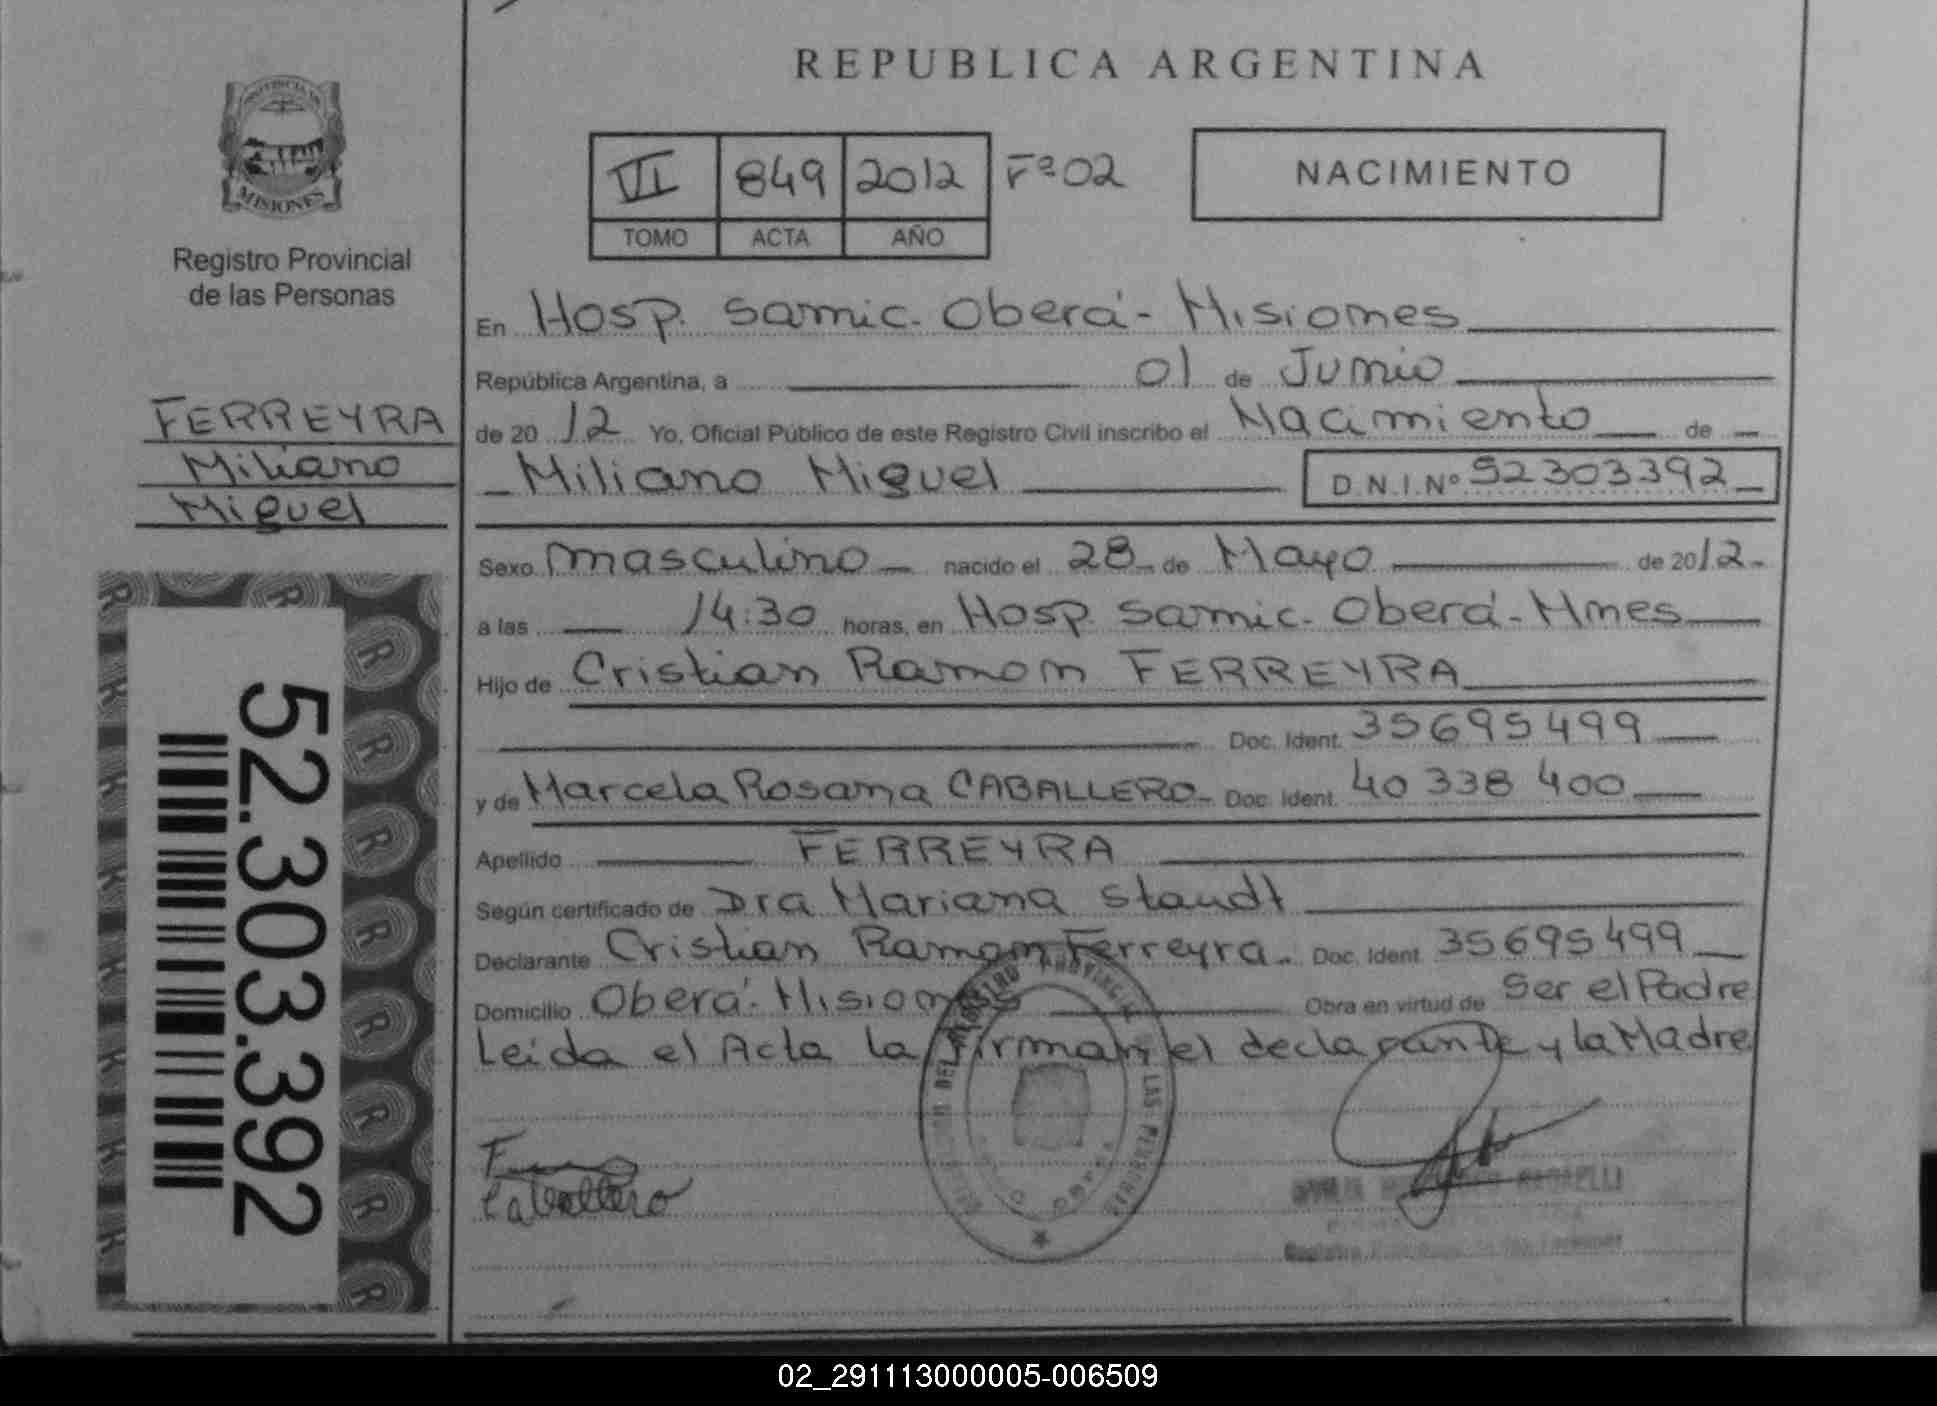 REPUBLICA ARGENTINA
PROVINCIA DE
MISIONES
Registro Provincial
de las Personas
VI 849 2012 Fº02
TOMO ACTA AÑO
NACIMIENTO
En Hosp. Samic. Oberá - Misiones
República Argentina, a 01 de Junio
de 2012 Yo, Oficial Público de este Registro Civil inscribo el Nacimiento de
Miliano Miguel D.N.I.Nº 52303392
FERREYRA
Miliano
Miguel
Sexo masculino nacido el 28 de Mayo de 2012
a las 14:30 horas, en Hosp. Samic. Oberá - Mnes
Hijo de Cristian Ramon FERREYRA
Doc. Ident. 35695499
y de Marcela Rosana CABALLERO Doc. Ident. 40 338 400
Apellido FERREYRA
Según certificado de Dra Mariana Staudt
Declarante Cristian Ramon Ferreyra. Doc. Ident. 35695499
Domicilio Oberá - Misiones Obra en virtud de Ser el Padre
Leida el Acta la firman el declarante y la Madre
Caballero
52.303.392
02_291113000005-006509